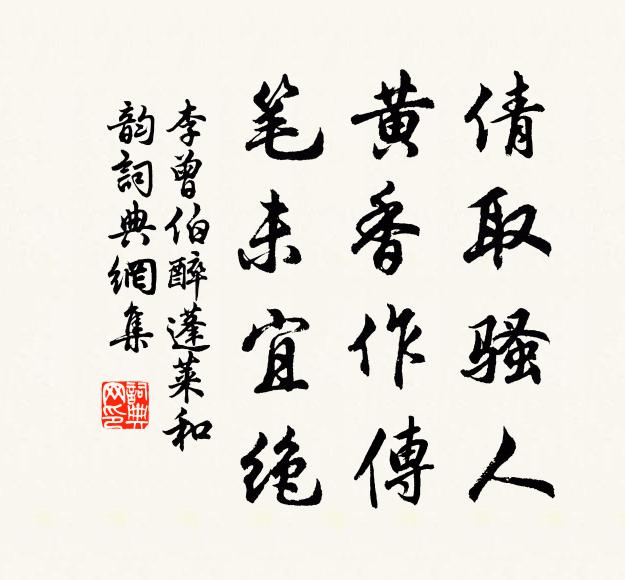 倩取骚人
黄香作傳
笔未宜绝
李曾伯醉蓬莱和
韵詞典網集
詞典网印